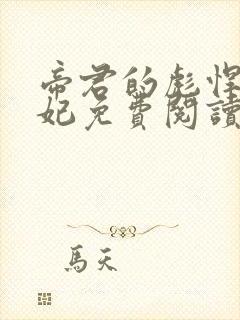 帝君的彪悍
妃免費閱讀
馬天